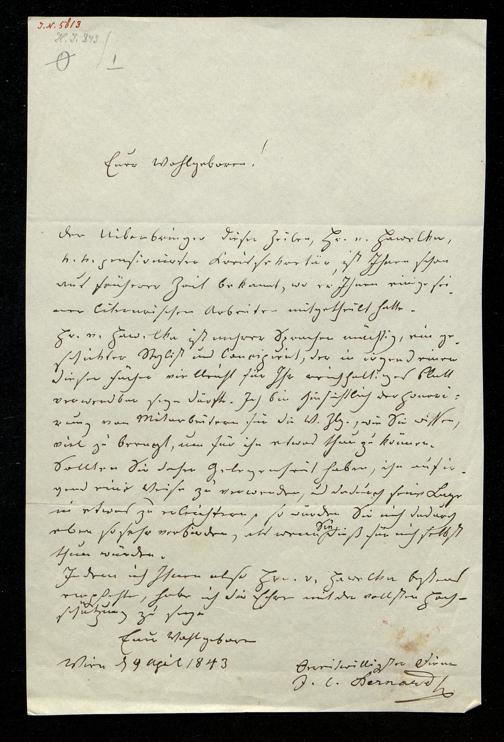 J.N. 5813
H.J. 843
1
Euer Wohlgeboren!
Der Ueberbringer dieser Zeilen, Hr. v. Hawelka,
k. k. pensionirter Kreissekretär, ist Ihnen schon
aus früherer Zeit bekannt, wo er Ihnen einige sei-
ner literarischen Arbeiten mitgetheilt hatte.
Hr. v. Hawelka ist mehrer Sprachen mächtig, ein ge-
schickter Stylist und Concipient, der in irgend einem
dieser Fächer vielleicht für Ihr reichhaltiges Blatt
verwendbar seyn dürfte. Ich bin hinsichtlich der Honori-
rung von Mitarbeitern für die W. Ztg., wie Sie wissen,
viel zu beengt, um für ihn etwas thun zu können.
Sollten Sie daher Gelegenheit haben, ihn auf ir-
gend eine Weise zu verwenden, und dadurch seine Lage
in etwas zu erleichtern, so würden Sie mich dadurch
eben so sehr verbinden, als wenn Sie dieß für mich selbst
thun würden.
Indem ich Ihnen also Hrn. v. Hawelka bestens
empfehle, habe ich die Ehre mit der vollsten Hoch-
schätzung zu seyn
Euer Wohlgeboren
Wien d 9 April 1843
bereitwilligster Diener
J. C. Bernard